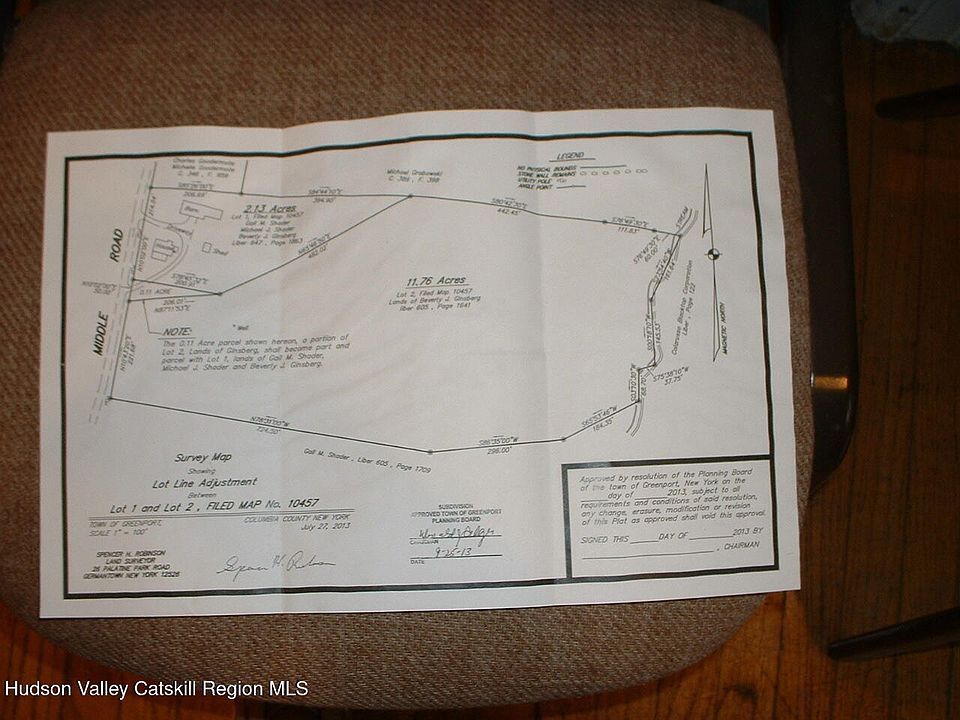 Charles Goudermote
Michele Goudermote
C. 346 , F.
Michael Grabowski
C. 385 , F. 398
LEGEND
NO PHYSICAL BOUNDS
STONE WALL REMAINS
UTILITY POLE
ANGLE POINT
S85°26'00"E
206.69'
S84°44'10"E
394.90'
S80°42'20"E
442.45'
S76°49'30"E
111.83'
S76°49'30"E
60.00'
STREAM
MIDDLE ROAD
Barn
Driveway
House
Shed
2.13 Acres
Lot 1, Filed Map 10457
Gail M. Shader
Michael J. Shader
Beverly J. Ginsberg
Liber 647 , Page 1863
482.02'
0.11 ACRE
206.01'
N87°11'53"E
11.76 Acres
Lot 2, Filed Map 10457
Lands of Beverly J. Ginsberg
liber 605 , Page 1641
Colarusso Blacktop Corporation
Liber , Page 122
MAGNETIC NORTH
145.53'
S75°38'10"W
37.75'
68.70'
S65°53'46"W
164.35'
S86°35'00"W
296.00'
N78°35'00"W
724.50'
Well
NOTE:
The 0.11 Acre parcel shown hereon, a portion of
Lot 2, Lands of Ginsberg, shall become part and
parcel with Lot 1, lands of Gail M. Shader,
Michael J. Shader and Beverly J. Ginsberg.
Gail M. Shader , Liber 605 , Page 1709
Survey Map
Showing
Lot Line Adjustment
Between
Lot 1 and Lot 2 , FILED MAP No. 10457
TOWN OF GREENPORT,
COLUMBIA COUNTY NEW YORK
SCALE 1" = 100'
July 27, 2013
SPENCER H. ROBINSON
LAND SURVEYOR
25 PALATINE PARK ROAD
GERMANTOWN NEW YORK 12526
Spencer H. Robinson
SUBDIVISION
APPROVED TOWN OF GREENPORT
PLANNING BOARD
CHAIRMAN
9-25-13
DATE
Approved by resolution of the Planning Board
of the town of Greenport, New York on the
day of 2013, subject to all
requirements and conditions of said resolution,
any change, erasure, modification or revision
of this Plat as approved shall void this approval.
SIGNED THIS DAY OF 2013 BY
, CHAIRMAN
Hudson Valley Catskill Region MLS